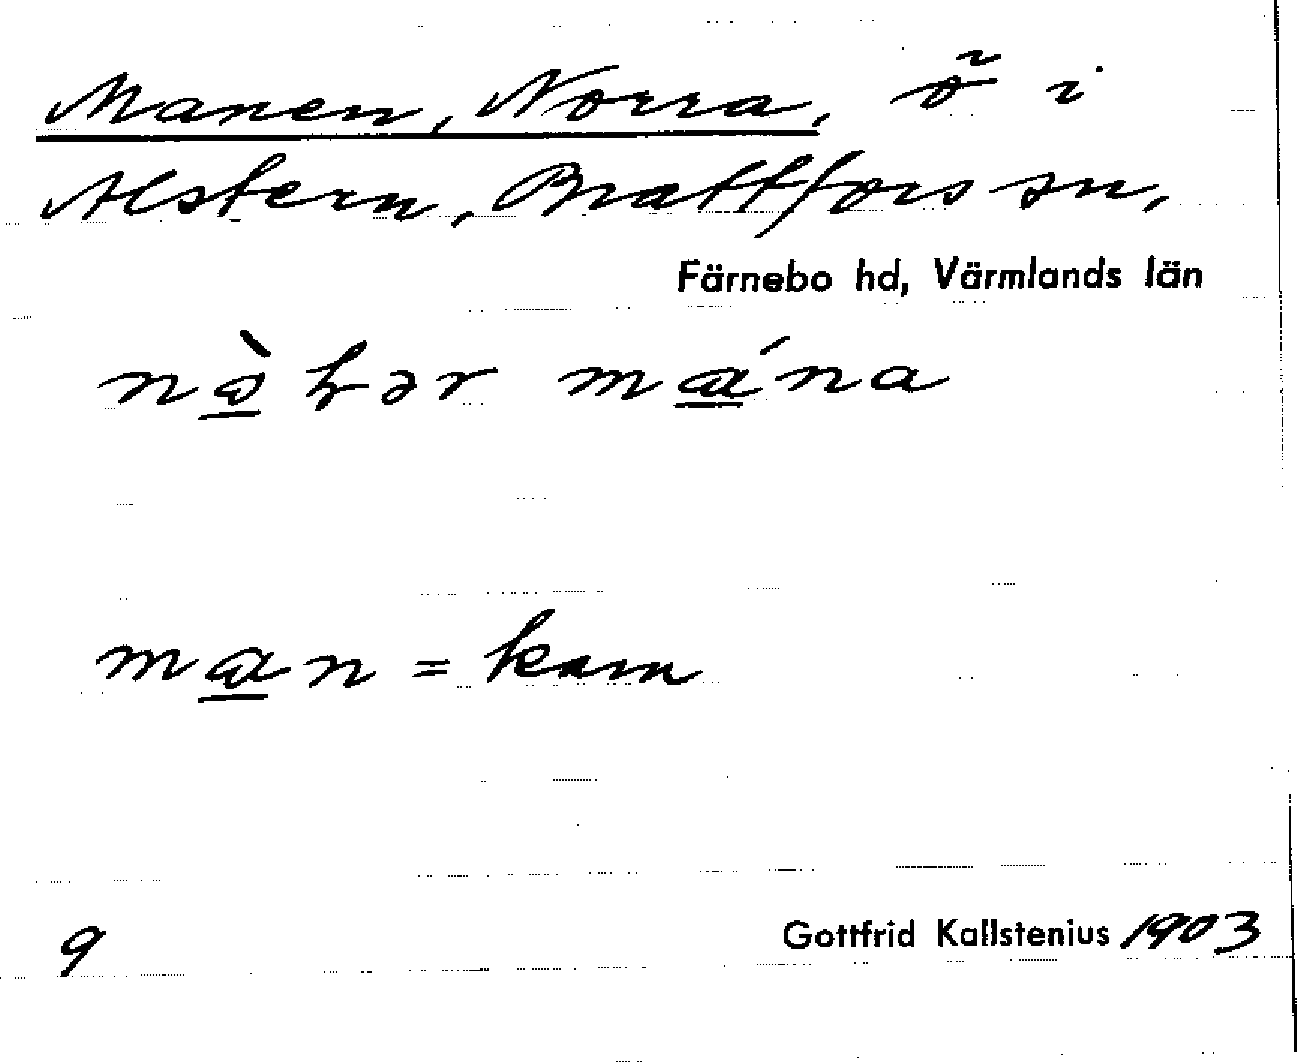 Manen, Norra, ö i
Alstern, Brattfors sn,
Färnebo hd, Värmlands län
mána
man = kam
9
Gottfrid Kallstenius 1903